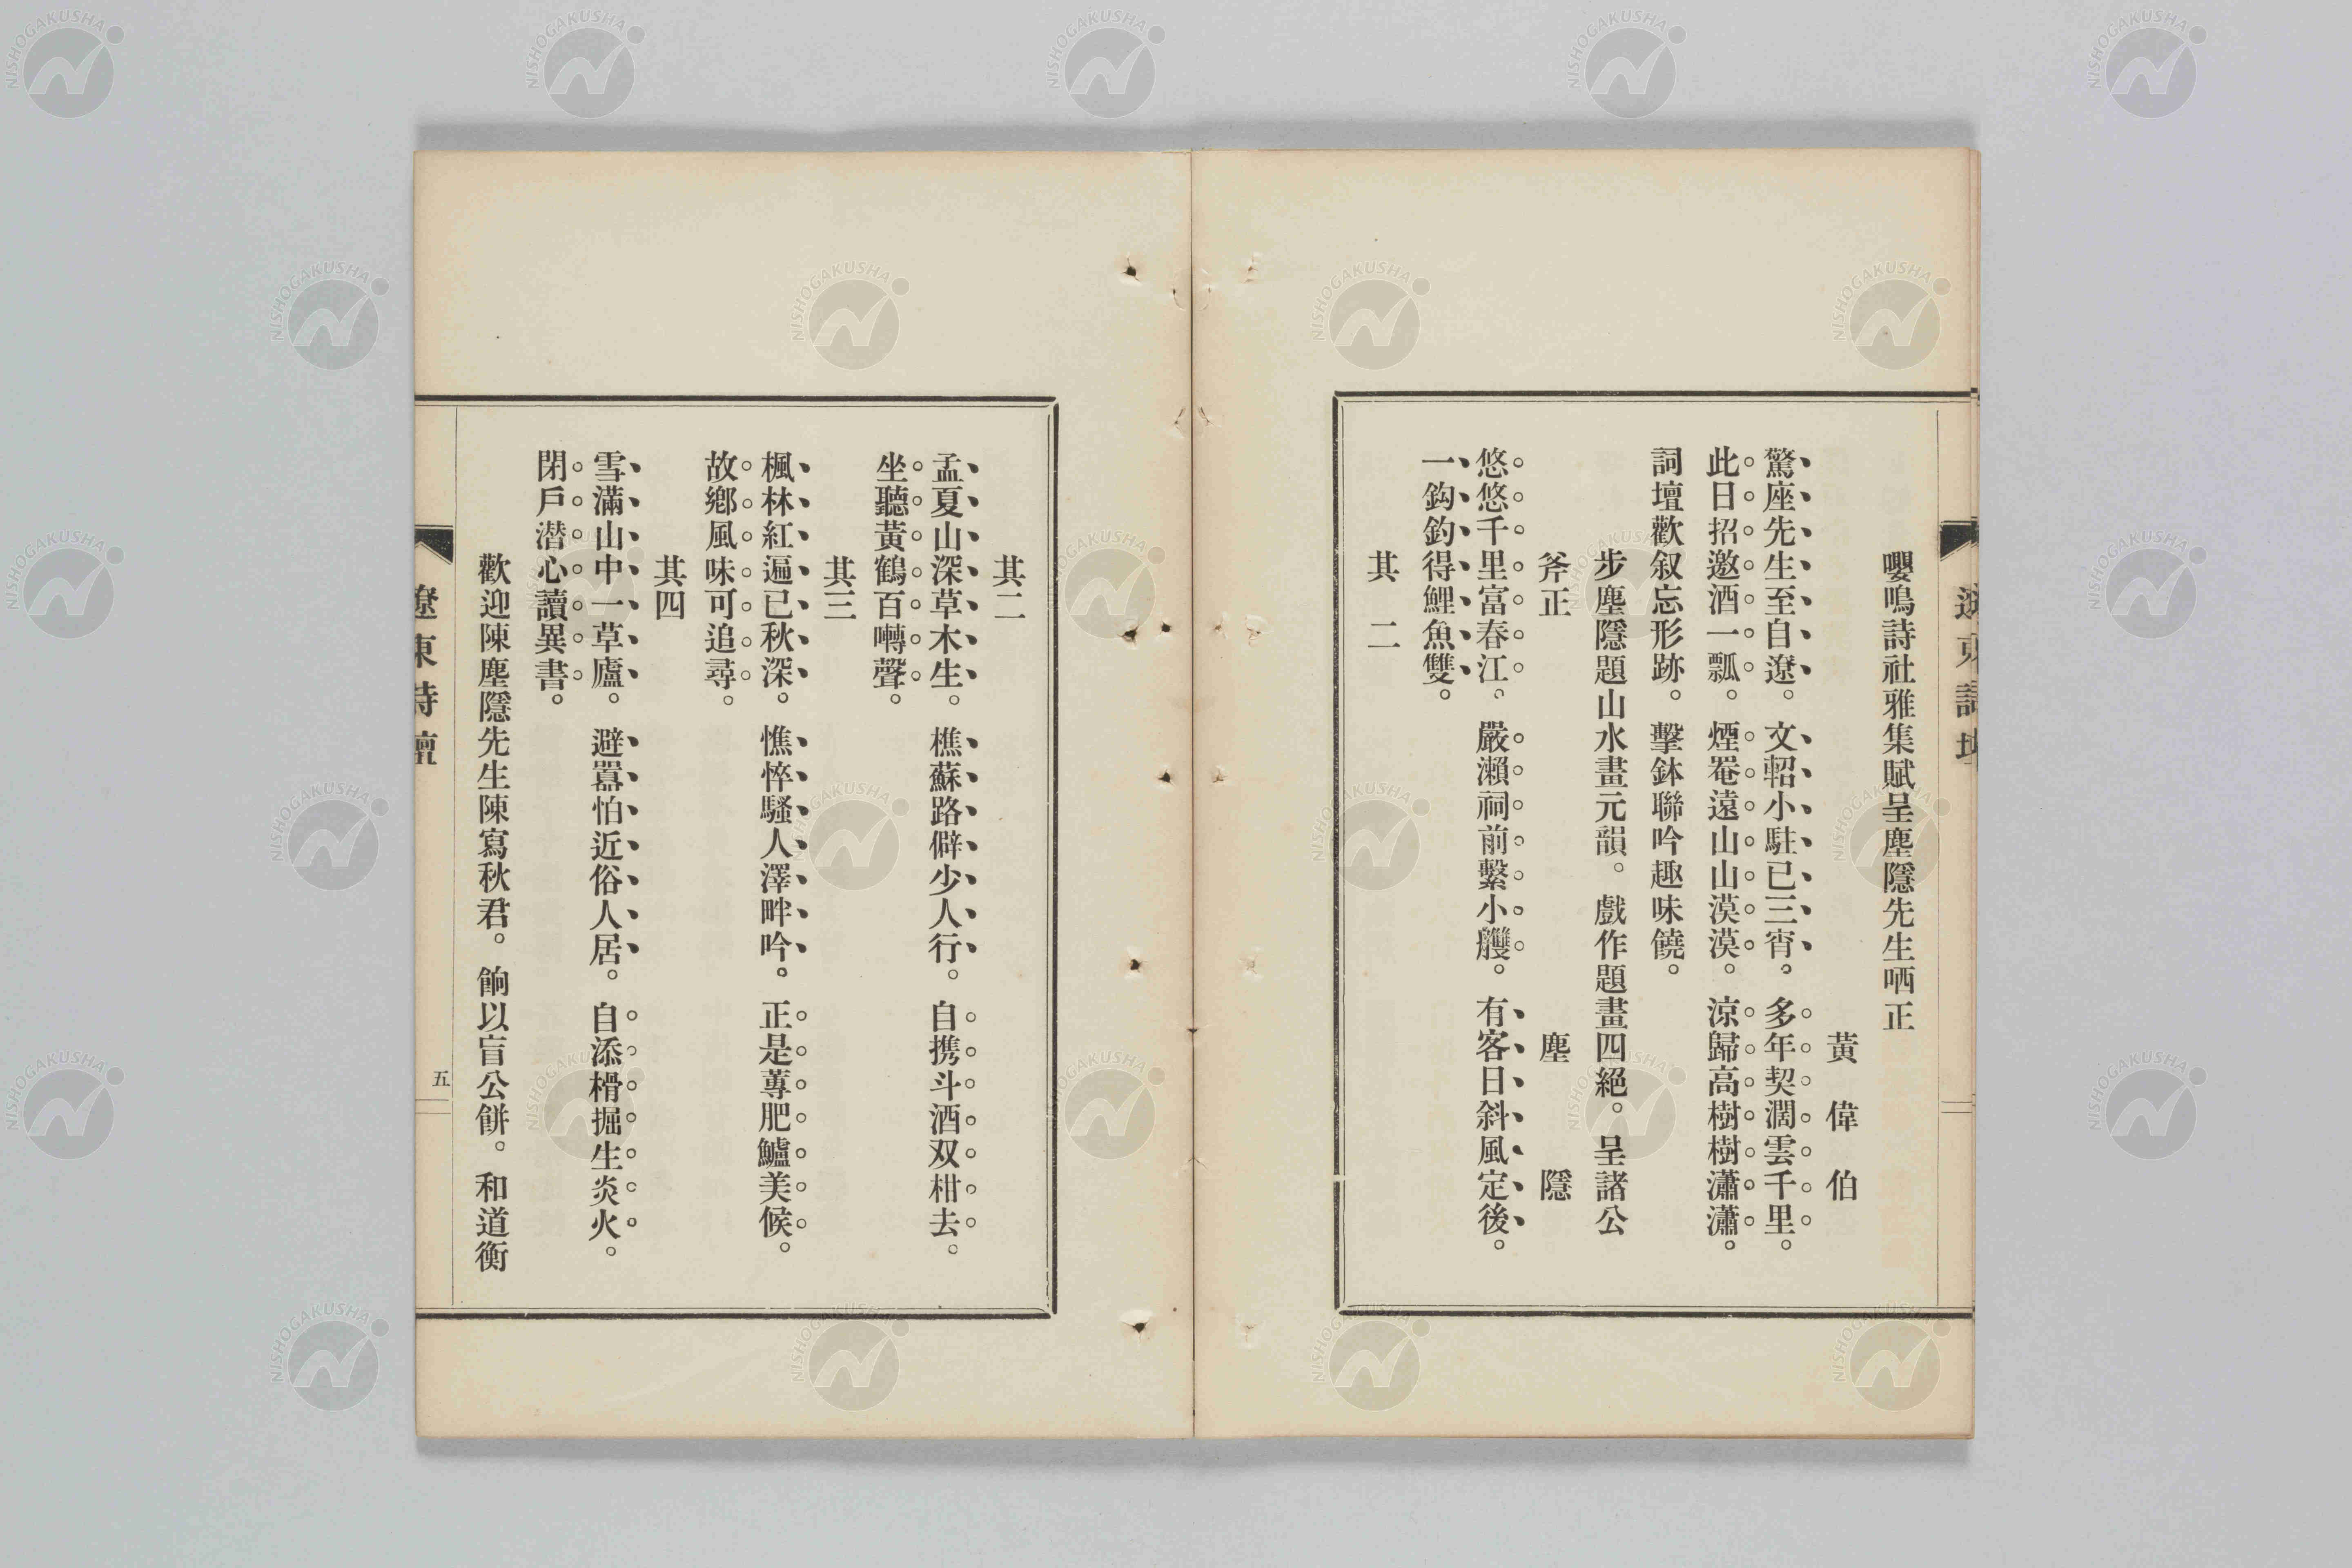 嚶鳴詩社雅集賦呈塵隱先生哂正
黃偉伯
驚座先生至自遼。文軺小駐已三宵。多年契濶雲千里。
此日招邀酒一瓢。煙罨遠山山漠漠。涼歸高樹樹瀟瀟。
詞壇歡叙忘形跡。擊鉢聯吟趣味饒。
步塵隱題山水畫元韻。戲作題畫四絕。呈諸公
斧正 塵隱
悠悠千里富春江。嚴瀨祠前繫小艭。有客日斜風定後。
一鈎釣得鯉魚雙。
其二
其二
孟夏山深草木生。樵蘇路僻少人行。自携斗酒双柑去。
坐聽黃鶴百囀聲。
其三
楓林紅遍已秋深。憔悴騷人澤畔吟。正是蓴肥鱸美候。
故鄉風味可追尋。
其四
雪滿山中一草廬。避囂怕近俗人居。自添榾掘生炎火。
閉戶潜心讀異書。
歡迎陳塵隱先生陳寫秋君。餉以盲公餅。和道衡
遼東詩壇
五
NISHOGAKUSHA